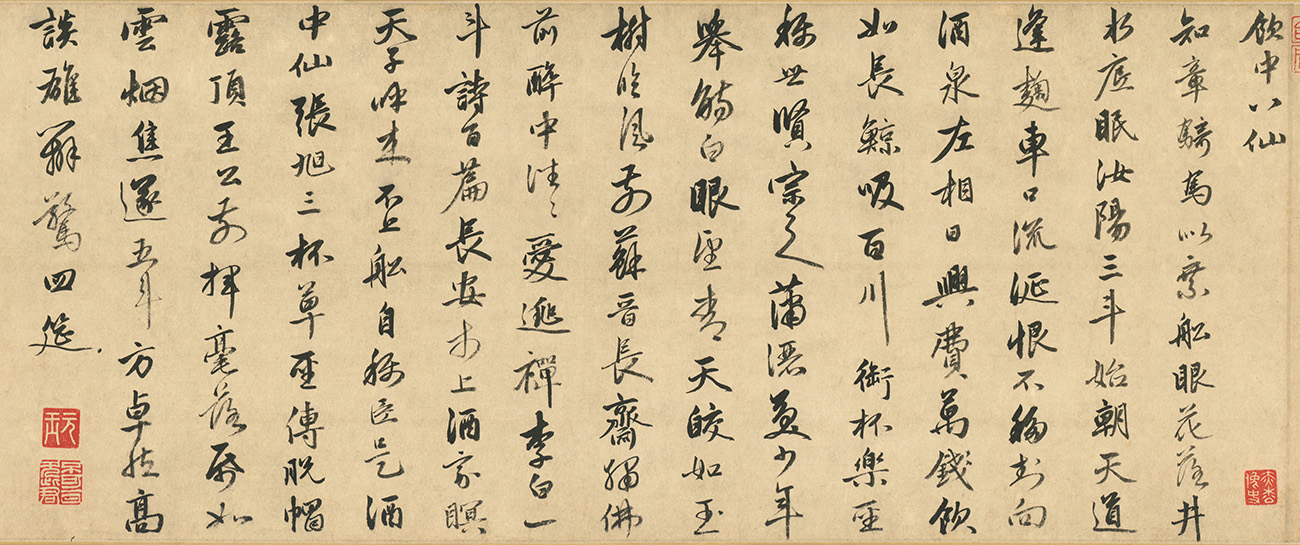 飲中八仙
知章騎馬似乘船眼花落井
水底眠汝陽三斗始朝天道
逢麹車口流涎恨不移封向
酒泉左相日興費萬錢飲
如長鯨吸百川銜杯樂聖
称世賢宗之蕭灑美少年
舉觴白眼望青天皎如玉
樹臨風前蘇晉長齋繡佛
前醉中往〻愛逃禪李白一
斗詩百篇長安市上酒家瞑
天子呼来不上船自称臣是酒
中仙張旭三杯草聖傳脫帽
露頂王公前揮毫落帋如
雲烟焦遂五斗方卓然高
談雄辯驚四筵